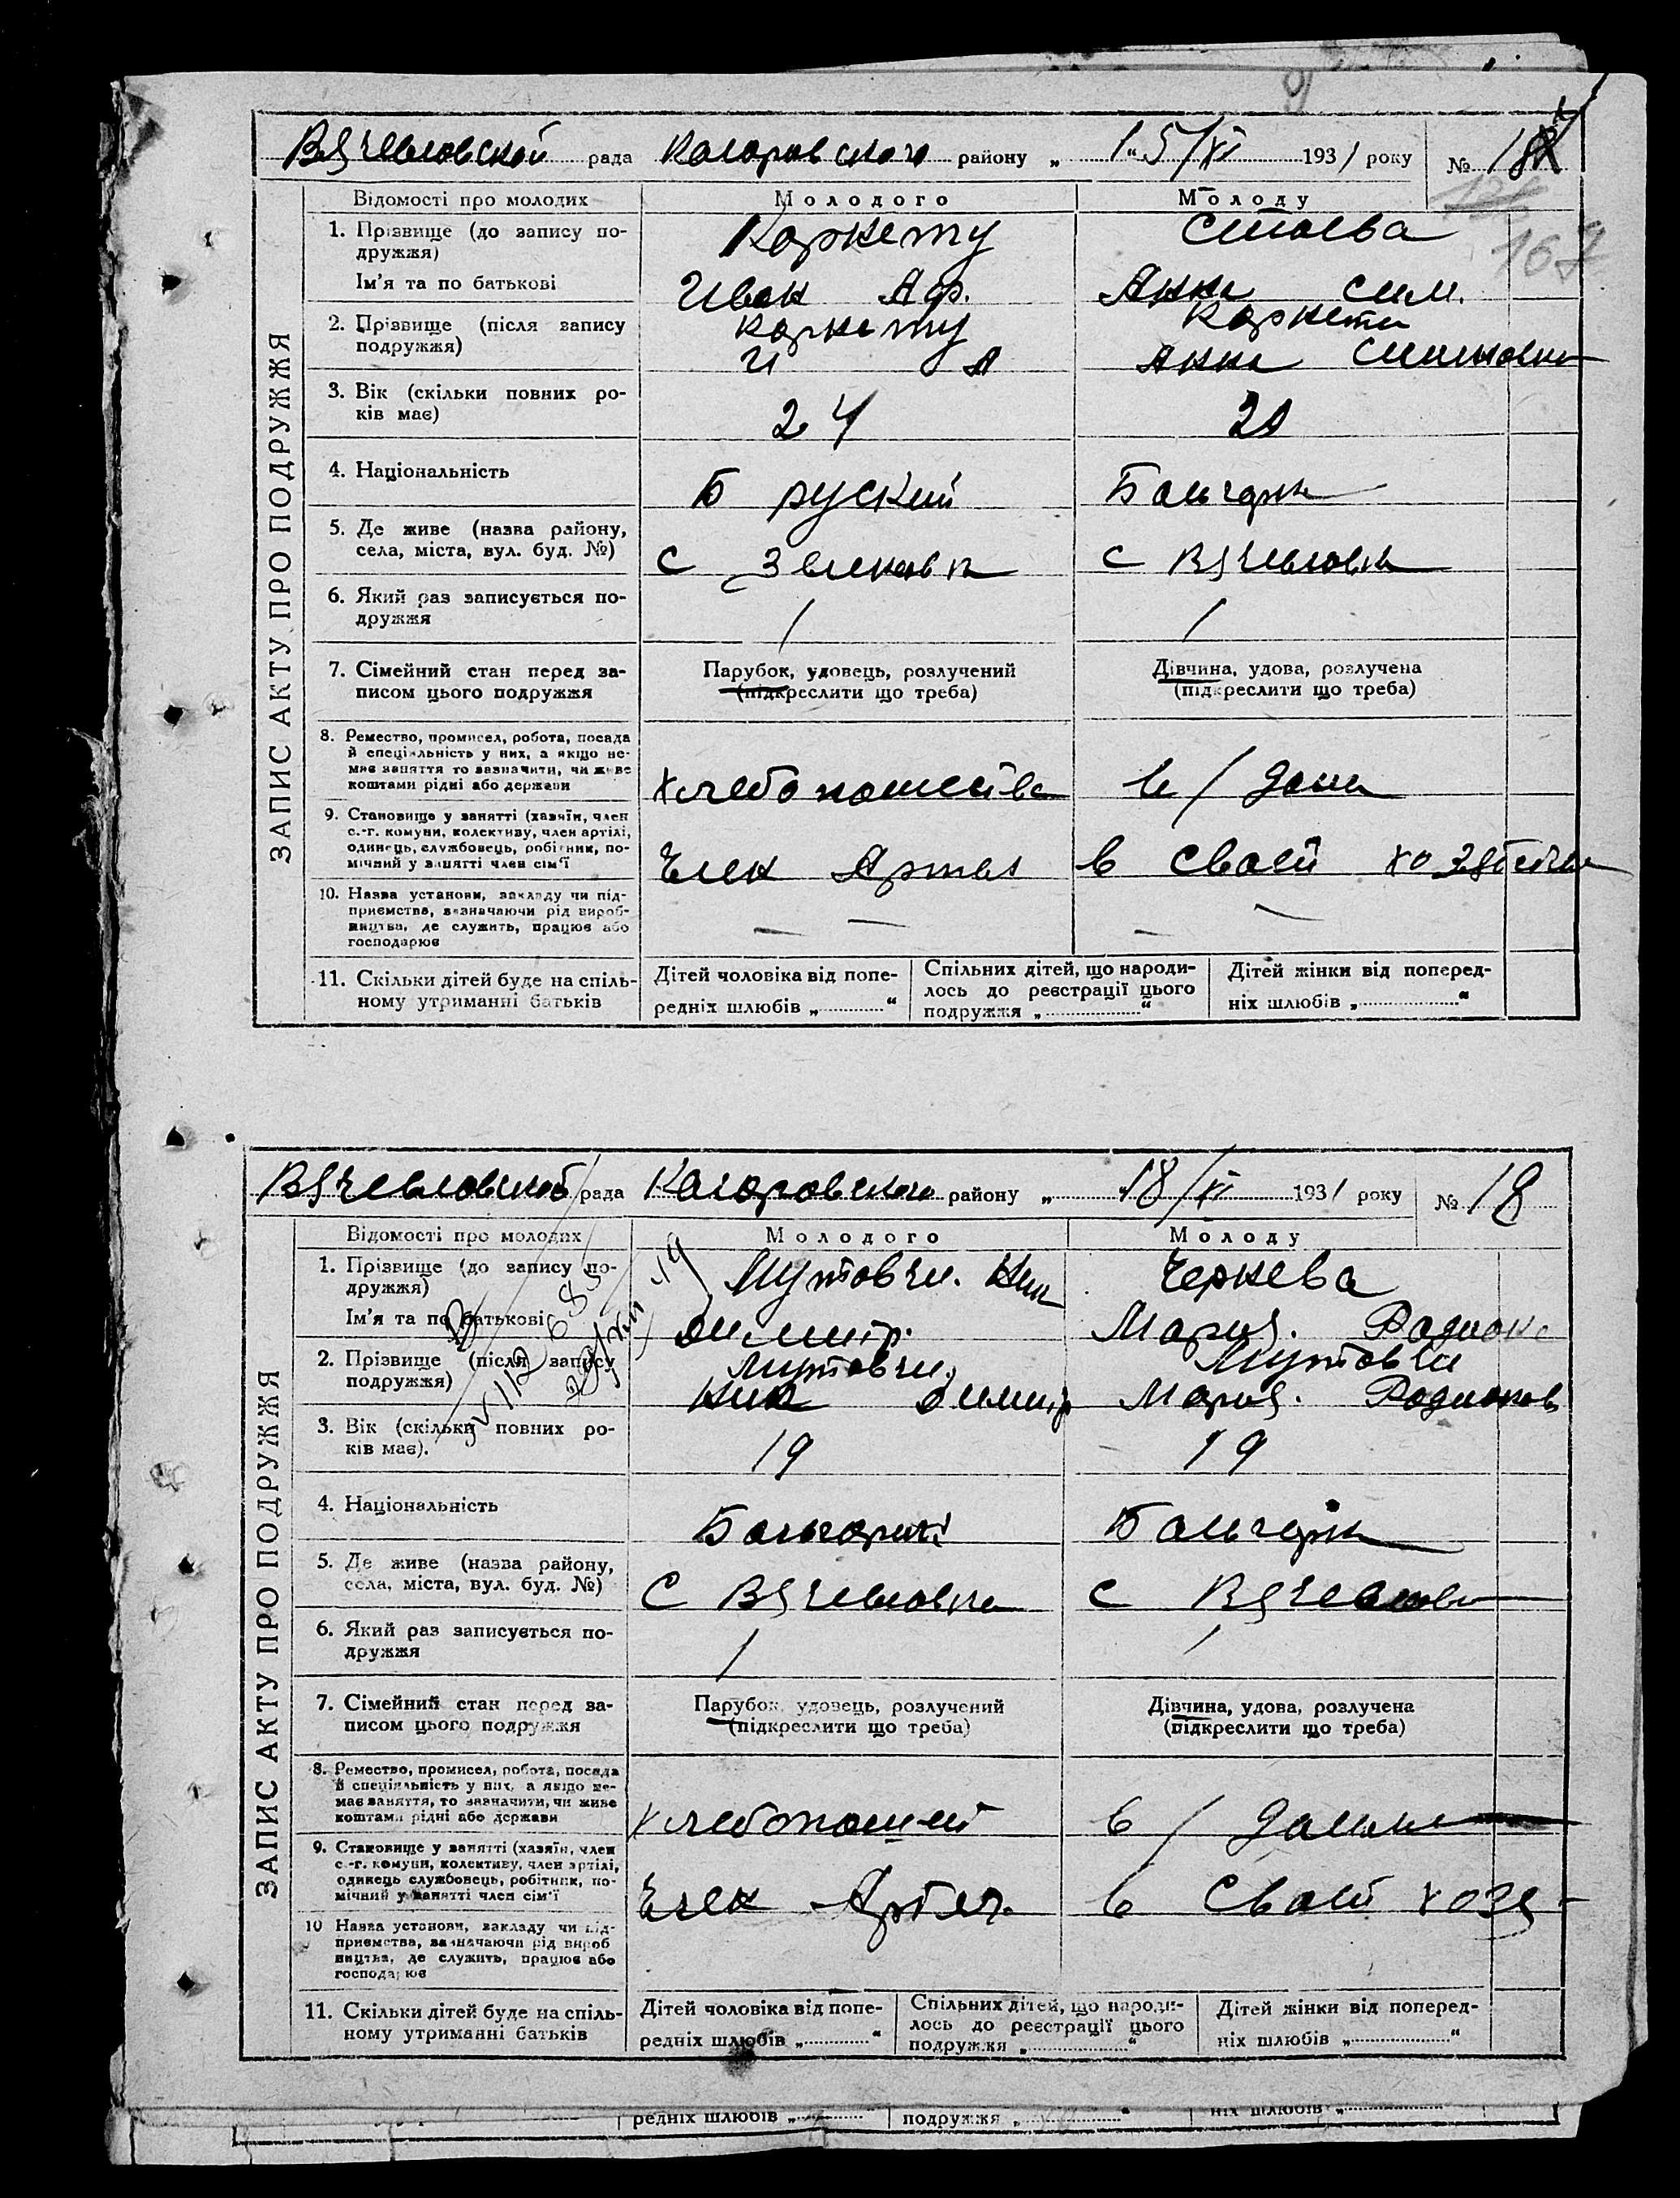 рада Коларовского району „ 15/XI 1931 року № 18
167
Відомості про молодих Молодого Молоду
ЗАПИС АКТУ ПРО ПОДРУЖЖЯ
1. Прізвище (до запису по-
дружжя)
Ім'я та по батькові
Иван Аф. Анна Сим.
2. Прізвище (після запису
подружжя)
И А Анна
3. Вік (скільки повних ро-
ків має)
24
4. Національність
Б руский Болгарк
5. Де живе (назва району,
села, міста, вул. буд. №)
С С
6. Який раз записується по-
дружжя
1 1
7. Сімейний стан перед за-
писом цього подружжя
Парубок, удовець, розлучений
(підкреслити що треба)
Дівчина, удова, розлучена
(підкреслити що треба)
8. Ремество, промисел, робота, посада
й спеціяльність у них, а якщо не-
має заняття то зазначити, чи живе
коштами рідні або держави
9. Становище у занятті (хазяїн, член
с.-г. комуни, колективу, член артілі,
одинець, службовець, робітник, по-
мічний у занятті член сім'ї
Член Артел в своей
10. Назва установи, закладу чи під-
приємства, зазначаючи рід вироб-
ництва, де служить, працює або
господарює
— — — —
11. Скільки дітей буде на спіль-
ному утриманні батьків
Дітей чоловіка від попе-
редніх шлюбів „ “
Спільних дітей, що народи-
лось до реєстрації цього
подружжя „ “
Дітей жінки від поперед-
ніх шлюбів „ “
рада Коларовского району „ 18/XI 1931 року № 18
Відомості про молодих Молодого Молоду
ЗАПИС АКТУ ПРО ПОДРУЖЖЯ
1. Прізвище (до запису по-
дружжя)
Мутовчи. Ник Чернева
Ім'я та по батькові
Димитр. Мария. Родионо
2. Прізвище (після запису
подружжя)
Мутовчи. Мутовчи
Ник Димитр Мария. Родионов
3. Вік (скільки повних ро-
ків має).
19 19
4. Національність
Болгарин Болгарк
5. Де живе (назва району,
села, міста, вул. буд. №)
С С
6. Який раз записується по-
дружжя
1 1
7. Сімейний стан перед за-
писом цього подружжя
Парубок, удовець, розлучений
(підкреслити що треба)
Дівчина, удова, розлучена
(підкреслити що треба)
8. Ремество, промисел, робота, посада
й спеціяльність у них, а якщо не-
має заняття, то зазначити, чи живе
коштами рідні або держави
9. Становище у занятті (хазяїн, член
с.-г. комуни, колективу, член артілі,
одинець службовець, робітник, по-
мічний у занятті член сім'ї
Член Артел. в своей хозя-
10 Назва установи, закладу чи під-
приємства, зазначаючи рід вироб
ництва, де служить, працює або
господарює
11. Скільки дітей буде на спіль-
ному утриманні батьків
Дітей чоловіка від попе-
редніх шлюбів „ “
Спільних дітей, що народи-
лось до реєстрації цього
подружжя „ “
Дітей жінки від поперед-
ніх шлюбів „ “
редніх шлюбів „ подружжя „ “ ніх шлюбів „